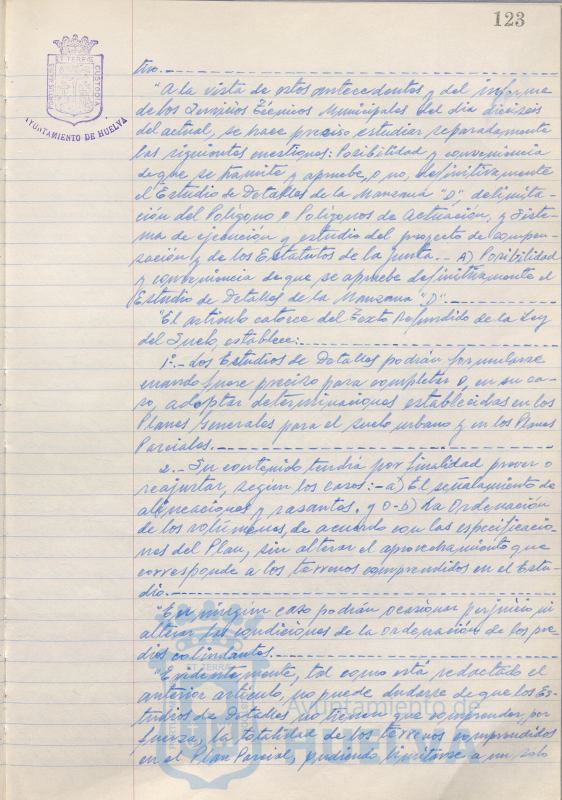 123
AYUNTAMIENTO DE HUELVA
tivo.
"A la vista de estos antecedentes y del informe
de los Servicios Técnicos Municipales del día dieciseis
del actual, se hace preciso estudiar separadamente
las siguientes cuestiones: Posibilidad y conveniencia
de que se tramite y apruebe, o no, definitivamente
el Estudio de Detalles de la Manzana "D", delimita-
ción del Polígono o Polígonos de Actuación, y Siste-
ma de ejecución y estudio del proyecto de Compen-
sación y de los Estatutos de la Junta.- A) Posibilidad
y conveniencia de que se apruebe definitivamente el
Estudio de Detalles de la Manzana "D".
"El artículo catorce del Texto Refundido de la Ley
del Suelo, establece:
1º.- Los Estudios de Detalles podrán formularse
cuando fuere preciso para completar o, en su ca-
so, adaptar determinaciones establecidas en los
Planes Generales para el suelo urbano y en los Planes
Parciales.
2.- Su contenido tendrá por finalidad prever o
reajustar, según los casos:- a) El señalamiento de
alineaciones y rasantes, y o-b) La Ordenación
de los volúmenes, de acuerdo con las especificacio-
nes del Plan, sin alterar el aprovechamiento que
corresponde a los terrenos comprendidos en el Estu-
dio.
"En ningún caso podrán ocasionar perjuicio ni
alterar las condiciones de la ordenación de los pre-
dios colindantes.
"Evidentemente, tal como está redactado el
anterior artículo, no puede dudarse de que los Es-
tudios de Detalles no tienen que comprender, por
fuerza, la totalidad de los terrenos comprendidos
en el Plan Parcial, pudiendo limitarse a un solo
Ayuntamiento de
HUELVA